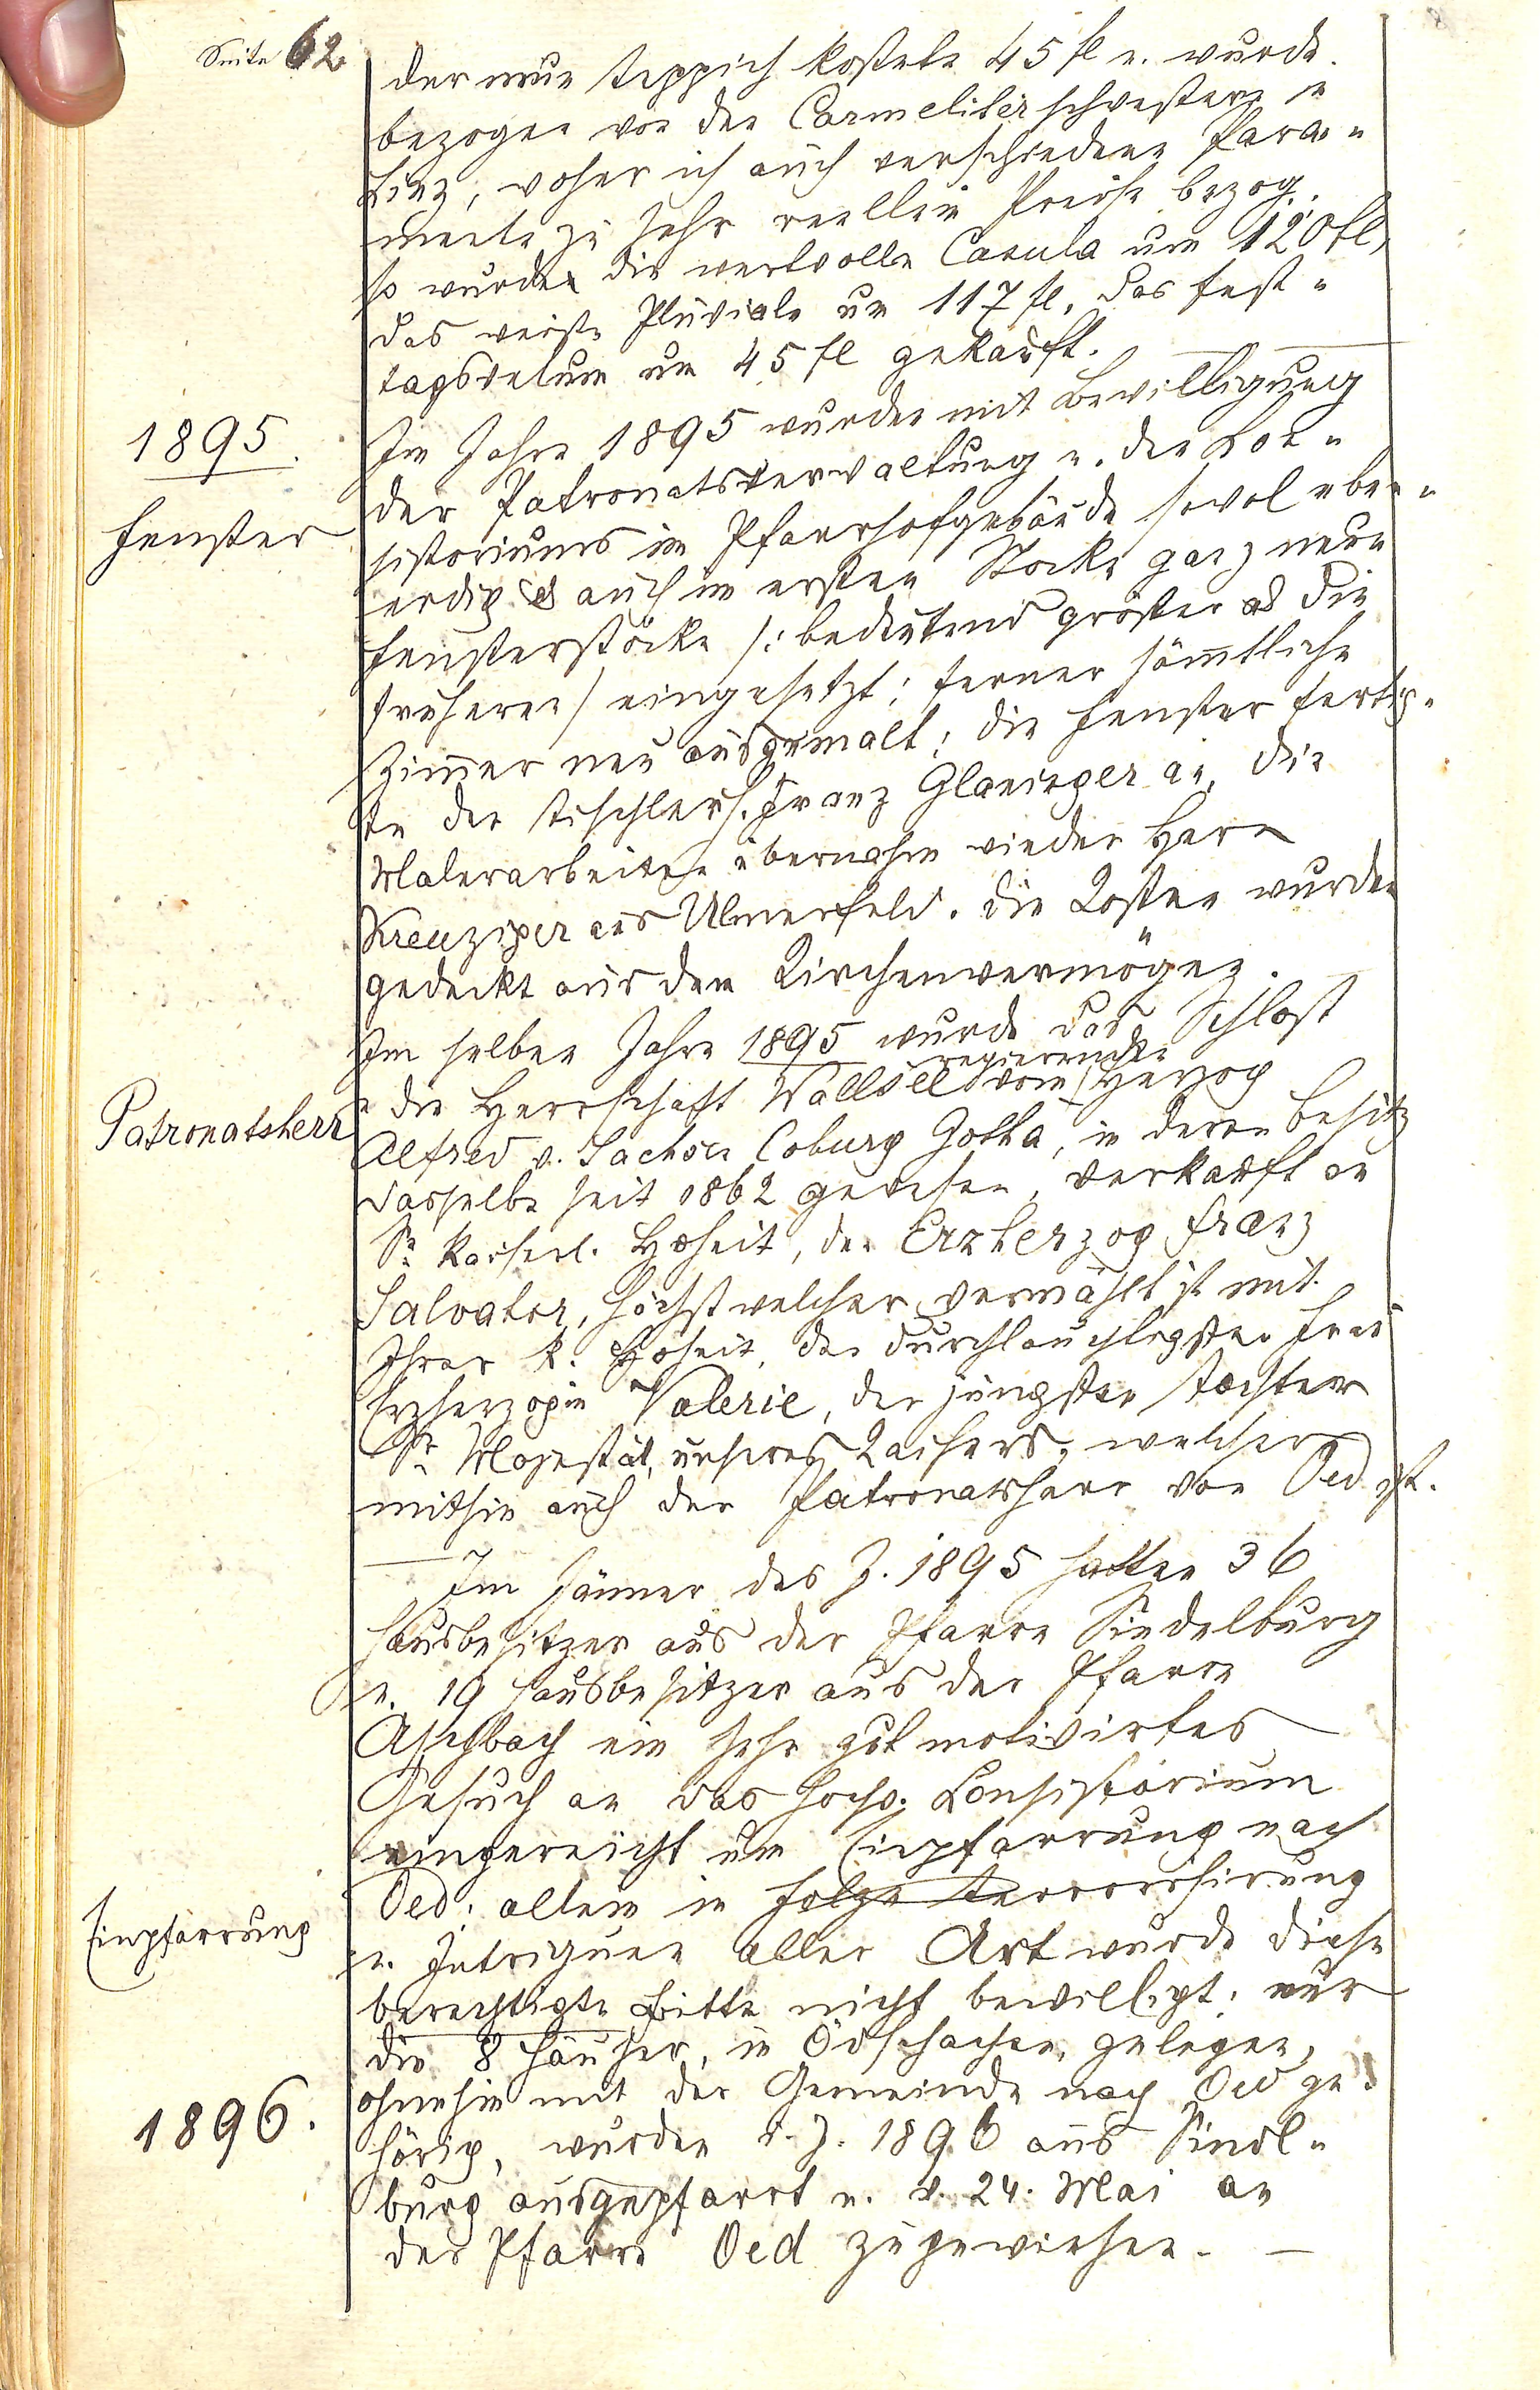 Seite 62
der neue Teppich kostete 45 fl u. wurde
bezogen von den Carmeliterschwestern in
Linz, woher ich auch verschiedene Para-
mente zu sehr reellem Preise bezog.
so wurden die wertvolle Casula um 120 fl,
das weiße Pluviale um 117 fl, das Fest-
tagsvelum um 45 fl gekauft. —
1895.
Im Jahre 1895 wurden mit Bewilligung
der Patronatsverwaltung u. des Con-
Fenster
sistoriums im Pfarrhofgebäude sowol eben-
erdig als auch im ersten Stocke ganz neue
Fensterstöcke /: bedeutend größer als die
früheren / eingesetzt; ferner sämtliche
Zimmer neu ausgemalt; die Fenster fertig-
te der Tischler H. Franz Glaninger an, die
Malerarbeiten übernahm wieder Herr
Kreuziger aus Ulmerfeld. Die Kosten wurden
gedeckt aus dem Kirchenvermögen.
Im selben Jahre 1895 wurde das Schloß
regierenden
u. die Herrschaft Wallsee vom Herzog
Patronatsherr
Alfred v. Sachsen Coburg Gotha, in deren Besitz
dasselbe seit 1862 gewesen, verkauft an
Sr. kaiserl. Hoheit, den Erzherzog Franz
Salvator, höchstwelcher vermählt ist mit
Ihrer k. Hoheit, der durchlauchtigsten Frau
Erzherzogin Valerie, der jüngsten Tochter
Sr. Majestät, unseres Kaisers, welcher
mithin auch der Patronatsherr von Oed ist.
— Im Jänner des J. 1895 hatten 36
Hausbesitzer aus der Pfarre Sindelburg
u. 19 Hausbesitzer aus der Pfarre
Aschbach ein sehr gut motivirtes
Gesuch an das hochw. Consistorium
eingereicht um Einpfarrung nach
Oed; allein in Folge Terrorisirung
Einpfarrung
u. Intriguen aller Art wurde diese
berechtigte Bitte nicht bewilligt; nur
die 8 Häuser, in Ödschachen gelegen,
ohnehin mit der Gemeinde nach Oed ge-
1896.
hörig, wurden i. J. 1896 aus Sindl-
burg ausgepfarrt u. v. 24. Mai an
der Pfarre Oed zugewiesen. —